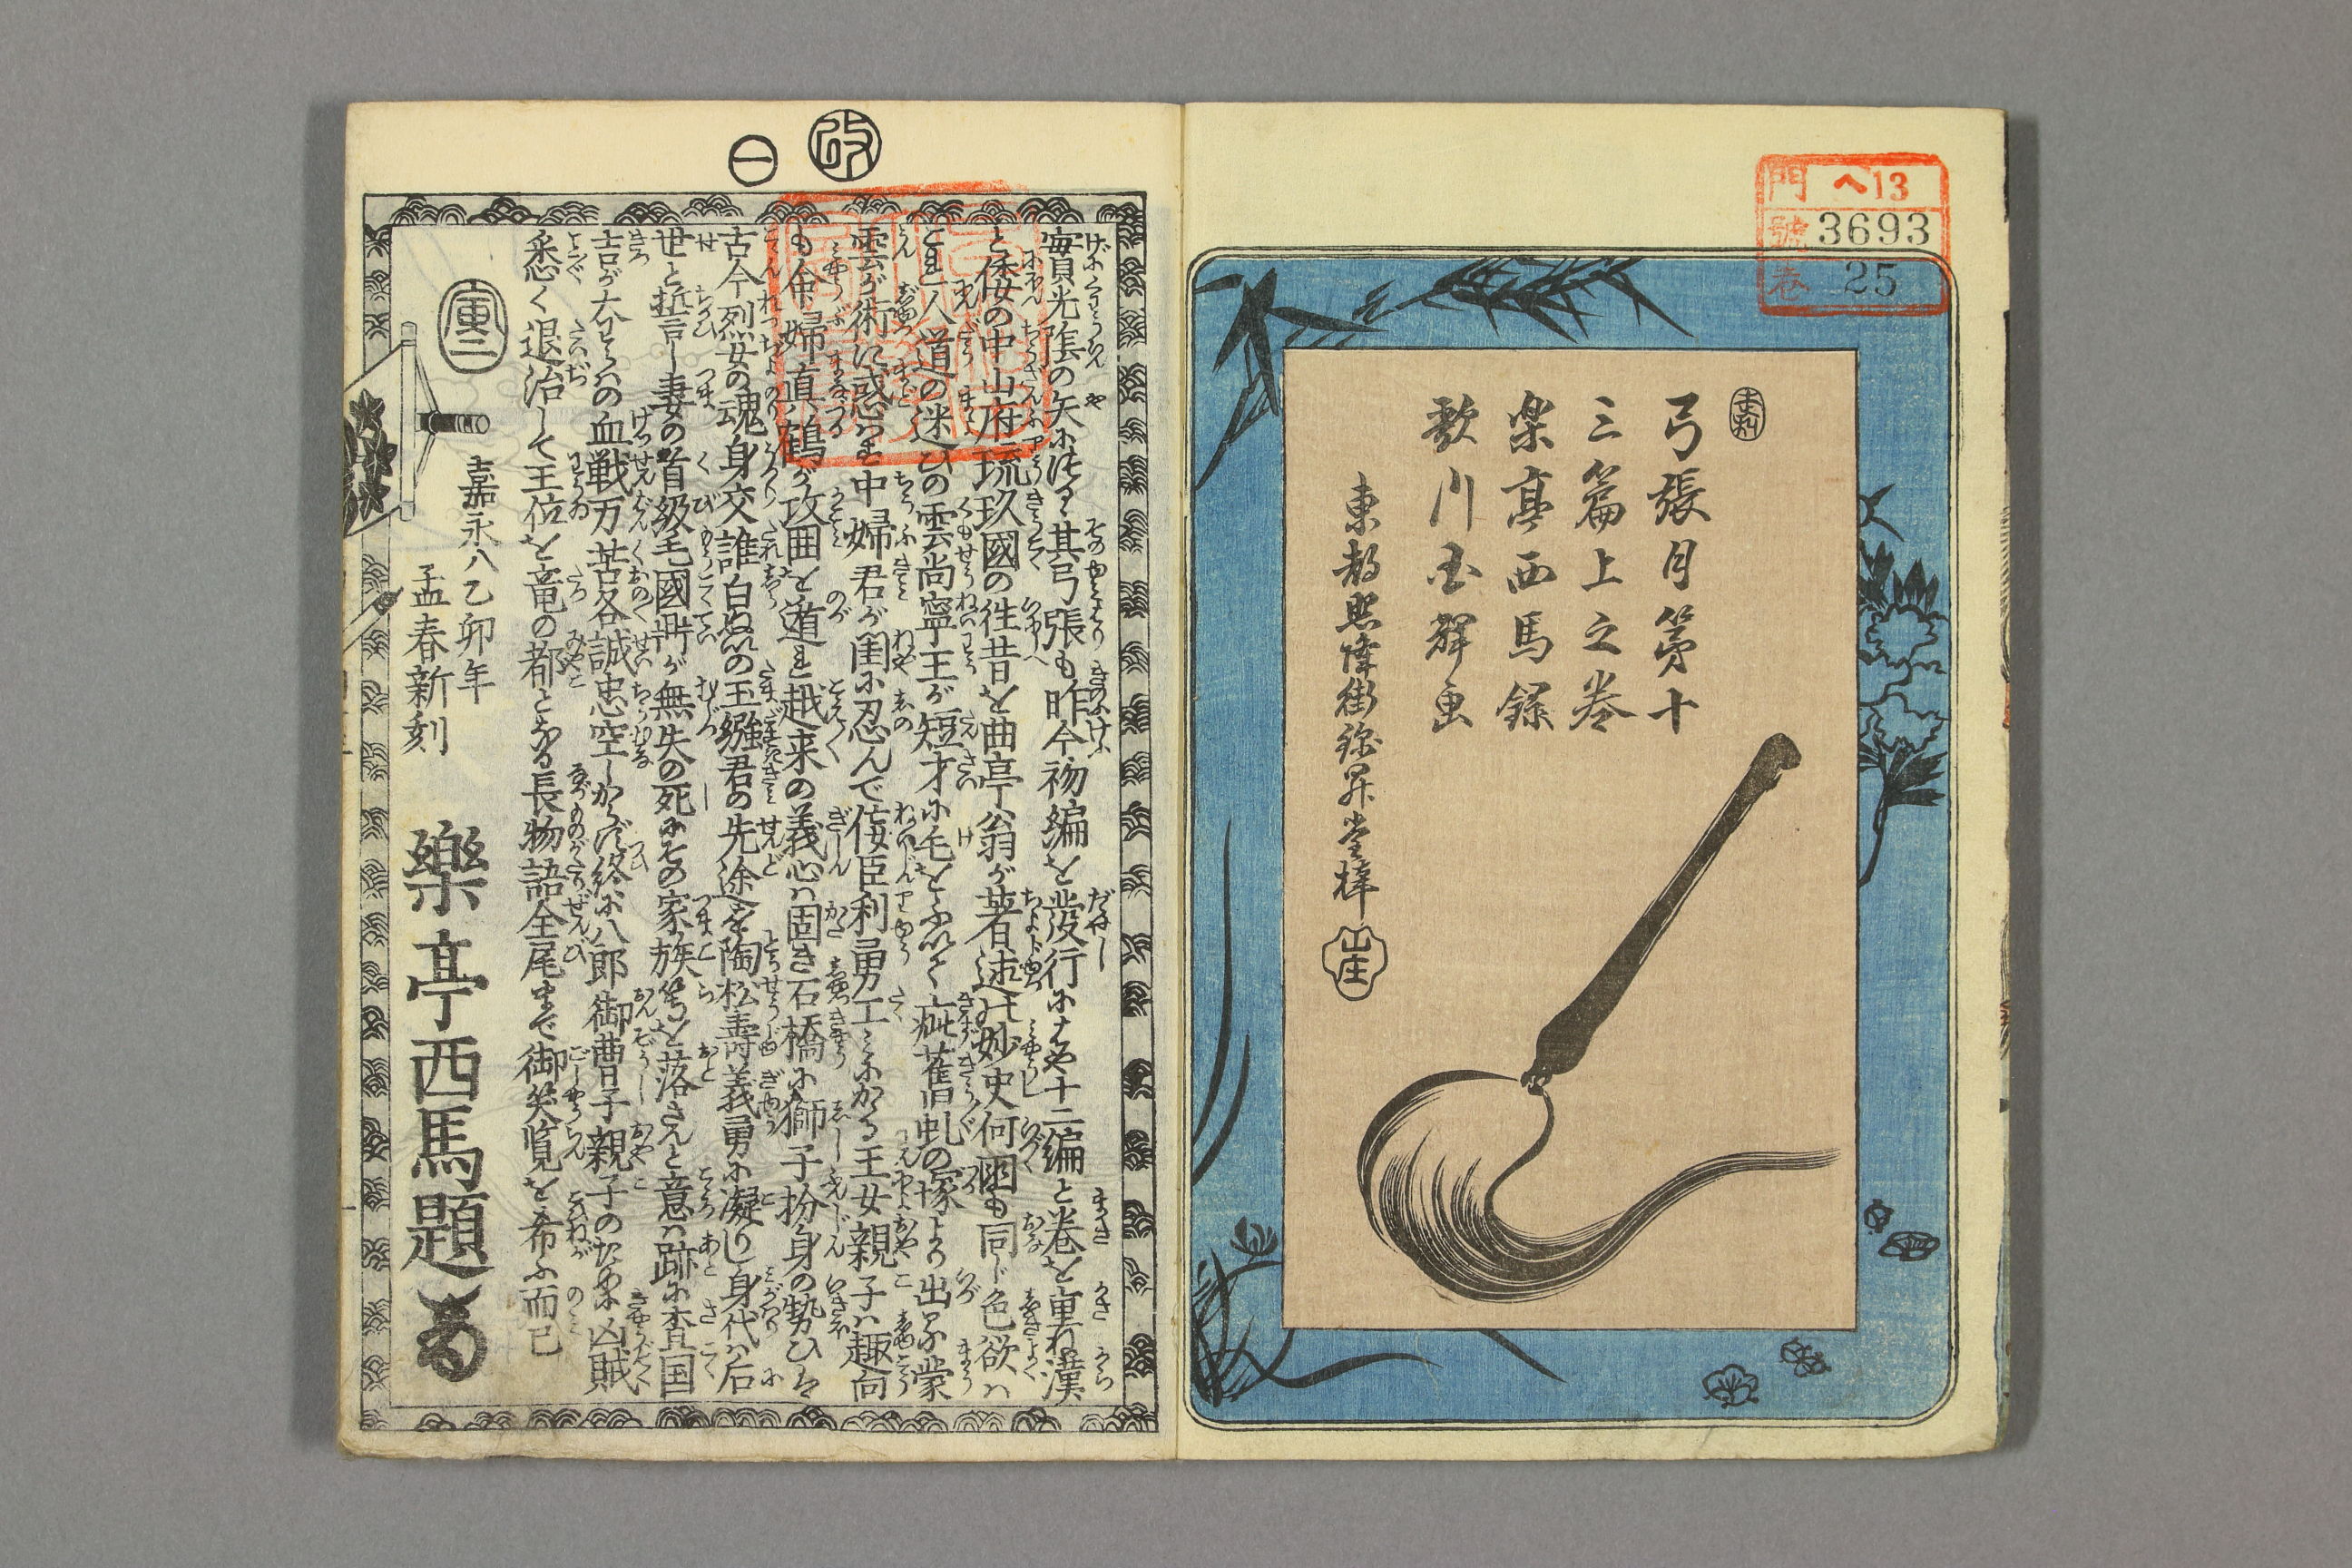 門 ヘ13
號 3693
卷 25
弓張月第十
三篇上之巻
楽亭西馬録
歌川国輝画
東都照降街錦昇堂梓
山庄
改
一
實光陰の矢に似て其弓張も昨今初編を發行にはや十二編と巻を重ね漢
と倭の中山府琉玖國の往昔を曲亭翁が著述の妙史何國も同じ色欲ハ
これ人道の迷ひの雲尚寧王が短才に毛をふいて疵舊虬の塚より出る蒙
雲が術に惑はす中婦君が閨に忍んで佞臣利勇工みにかる王女親子ハ趣向
も余婦直鶴が攻囲を遁れ越来の義心ハ固き石橋に獅子扮身の勢ひは
古今烈女の魂身交誰白ぬいの玉繦君の先途を陶松壽義勇に凝り身代ハ石
世と哲言し妻の首級毛國鼎が無失の死にその家族等を落さんと意ハ跡に査国
吉が大すの血戦万苦各誠忠空しからで終に八郎御曹子親子のために凶賊
悉く退治して王位を竜の都となる長物語全尾まで御笑覧を希ふ而已
嘉永八乙卯年
孟春新刻
樂亭西馬題